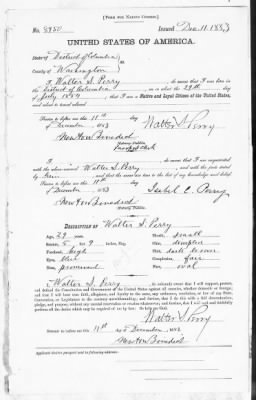 [FORM FOR NATIVE CITIZEN.]
No. 8950 Issued Dec. 11. 1883
UNITED STATES OF AMERICA.
State of District of Columbia
County of Washington } ss.
I, Walter S. Perry, do swear that I was born
in the District of Columbia, on or about the 29th day
of July 1854, that I am a Native and Loyal Citizen of the United States,
and about to travel abroad.
Sworn to before me this 11th day
of December, 1883 Walter S. Perry
Newton Benedict
Notary Public.
I, do swear that I am acquainted
with the above-named Walter S. Perry, and with the facts stated
by him, and that the same are true to the best of my knowledge and belief.
Sworn to before me this 11th day
of December 1883 Isabel C. Perry
Newton Benedict
Notary Public.
DESCRIPTION OF Walter S. Perry
Age, 29 years Mouth, small
Stature, 5 ft 9 inches, Eng. Chin, dimpled
Forehead, high Hair, dark brown
Eyes, blue Complexion, fair
Nose, prominent Face, oval
I, Walter S. Perry, do solemnly swear that I will support, protect,
and defend the Constitution and Government of the United States against all enemies, whether domestic or foreign;
and that I will bear true faith, allegiance, and loyalty to the same, any ordinance, resolution, or law of any State,
Convention, or Legislature to the contrary notwithstanding; and further, that I do this with a full determination,
pledge, and purpose, without any mental reservation or evasion whatsoever; and further, that I will well and faithfully
perform all the duties which may be required of me by law. So help me God.
Walter S. Perry
Sworn to before me this 11th day of December, 1883
Newton Benedict